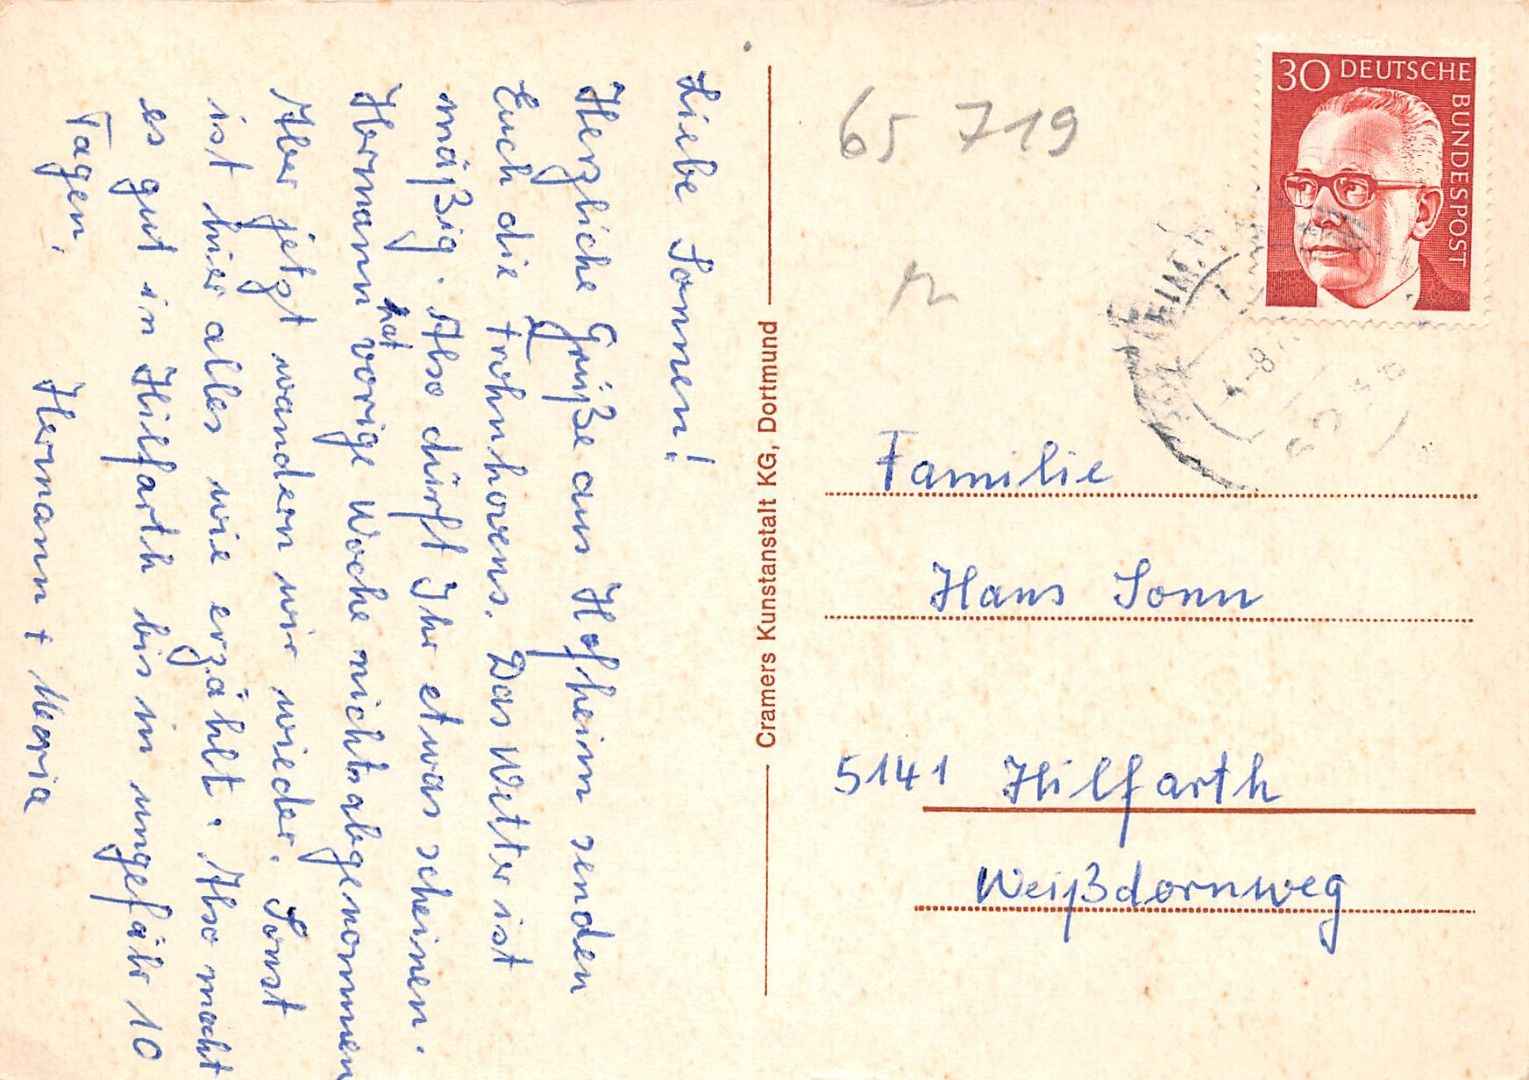 Liebe Sonnen!
Herzliche Grüße aus Hofheim senden
Euch die Frohnhovens. Das Wetter ist
mäßig. Also dürft Ihr etwas scheinen.
Hermann hat vorige Woche nichtsabgenommen
Aber jetzt wandern wir wieder. Sonst
ist hier alles wie erzählt. Also macht
es gut in Hilfarth bis in ungefähr 10
Tagen.
Hermann + Maria
Cramers Kunstanstalt KG, Dortmund
65 719
30 DEUTSCHE
BUNDESPOST
Familie
Hans Sonn
5141 Hilfarth
Weißdornweg